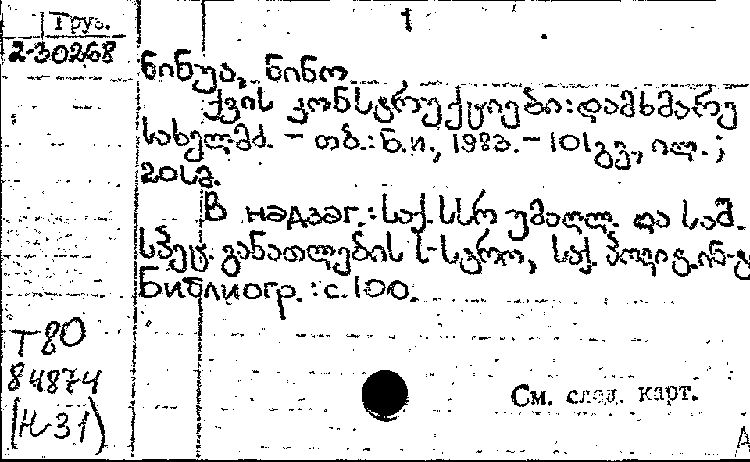 Груз.
1
2-30268
ნინუა, ნინო
ქვის კონსტრუქციები: დამხმარე
სახელმძ. – თბ.: ბ.ი., 1983. – 101გვ., ილ.;
20სმ.
В надзаг.: საქ. სსრ უმაღლ. და საშ.
სპეც. განათლების ს-სტრო, საქ. პოლიტ. ინ-ტ
Библиогр.: с. 100.
Т80
84874
(Н-31)
См. след. карт.
А